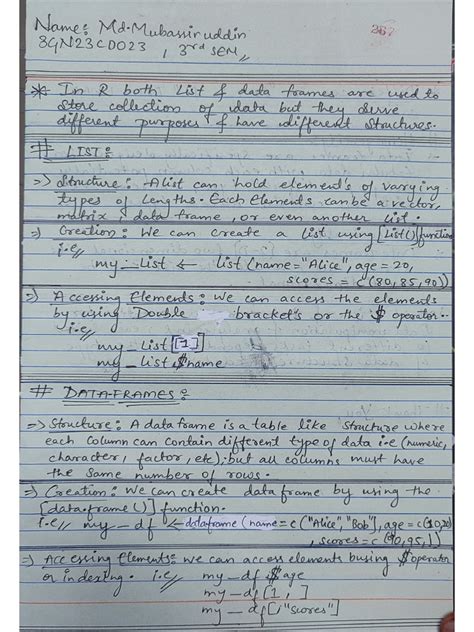 Name: Md. Mubassiruddin
3GN23CD023 , 3rd SEM,,
* In R both List & data frames are used to
Store collection of data but they serve
different purposes & have different structures.
# LIST:
=> Structure: A list can hold element's of varying
types of Lengths. Each Elements can be a vector,
matrix, data frame, or even another list.
=> Creation: We can create a list using [List()] function
i.e,,
my_List ← list (name="Alice", age = 20,
scores = c(80,85,90))
=> Accessing Elements: We can access the elements
by using Double bracket's or the $ operator.
i.e,,
my_List [1]
my_List $name
# DATA-FRAMES:
=> Structure: A data frame is a table like Structure where
each column can contain different type of data i.e (numeric,
character, factor, etc), but all columns must have
the same number of rows.
=> Creation: We can create data frame by using the
[data.frame()] function.
i.e,, my_df ← dataframe (name = c("Alice","Bob"), age = c(
, scores = c(90,95,
=> Accessing Elements: we can access elements busing $ operator
or indexing. i.e,, my_df $age
my_df [1, ]
my_df [,"Scores"]